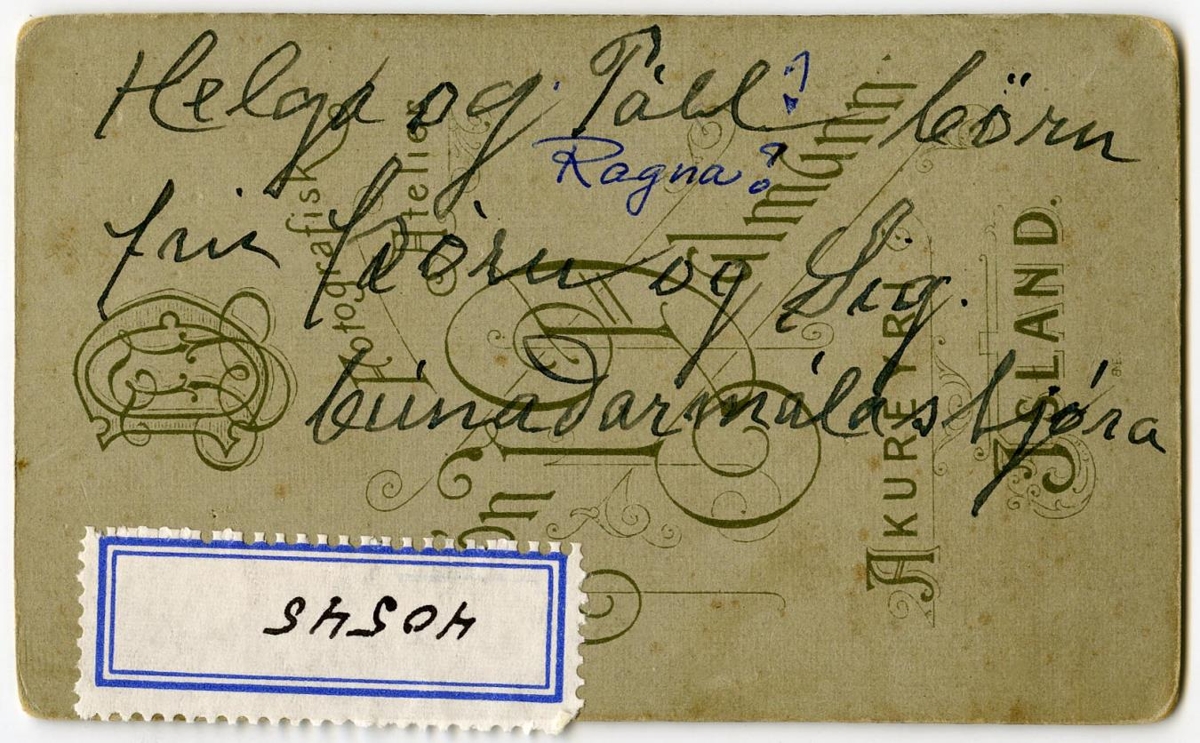 Helga og Páll? börn
Ragna?
frú Þóru og Sig.
búnaðarmálastjóra
Fotografisk
Atelier
AKUREYRI.
ISLAND.
40545